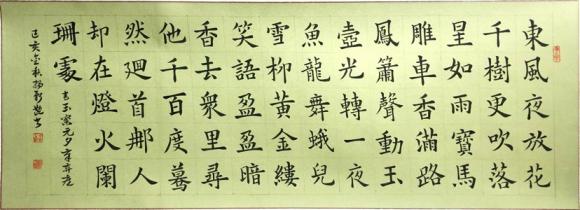 東風夜放花
千樹更吹落
星如雨寶馬
雕車香滿路
鳳簫聲動玉
壺光轉一夜
魚龍舞蛾兒
雪柳黃金縷
笑語盈盈暗
香去衆里尋
他千百度驀
然迴首那人
却在燈火闌
珊處
青玉案元夕辛弃疾
己亥金秋楊新書